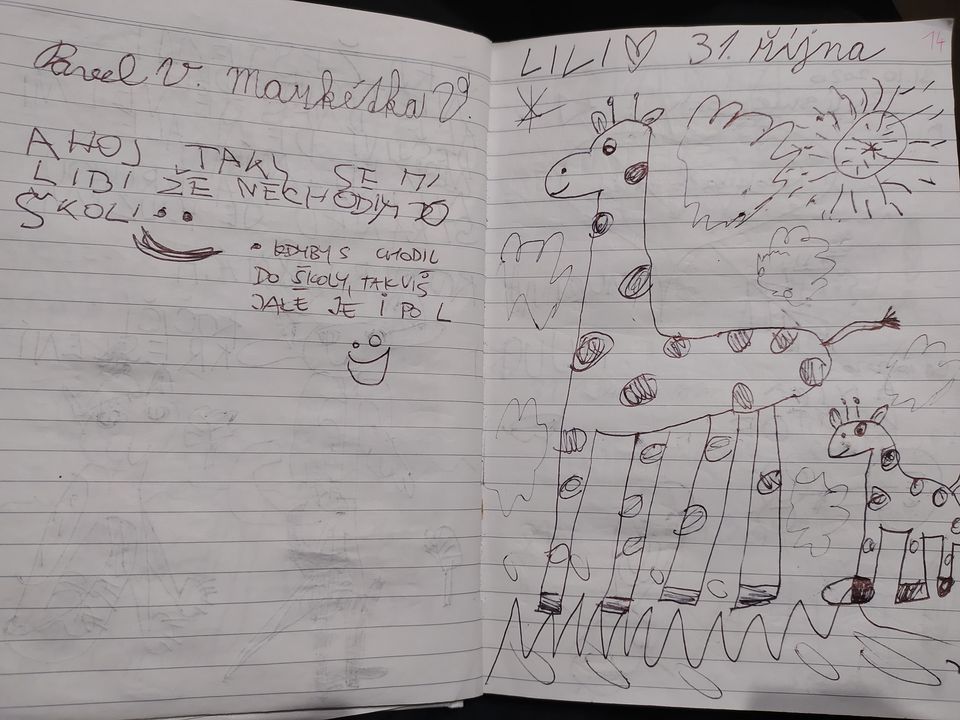 Pavel V. Markétka V.
AHOJ TAKY SE MI
LIBI ŽE NECHODIM DO
ŠKOLI
• KDYBY S CHODIL
DO ŠKOLY, TAK VIŠ
JAK JE I PO L
LILI 31. října
14